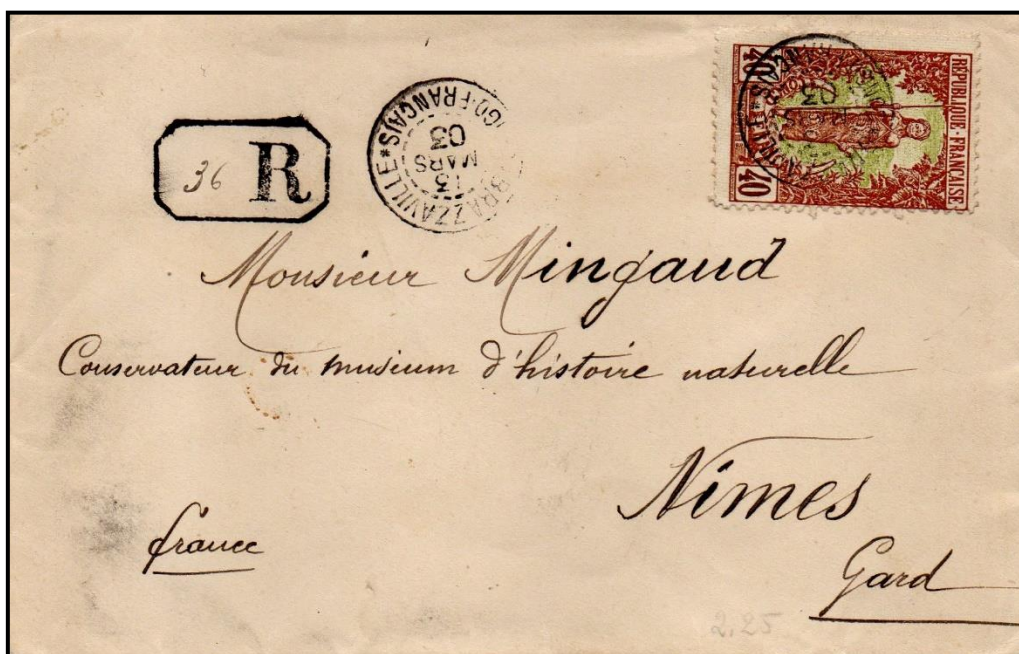 36 R
BRAZZAVILLE * GO-FRANÇAIS *
13
MARS
03
REPUBLIQUE-FRANÇAISE
40
40
03
Monsieur Mingaud
Conservateur du muséum d'histoire naturelle
Nîmes
france
Gard
2.25